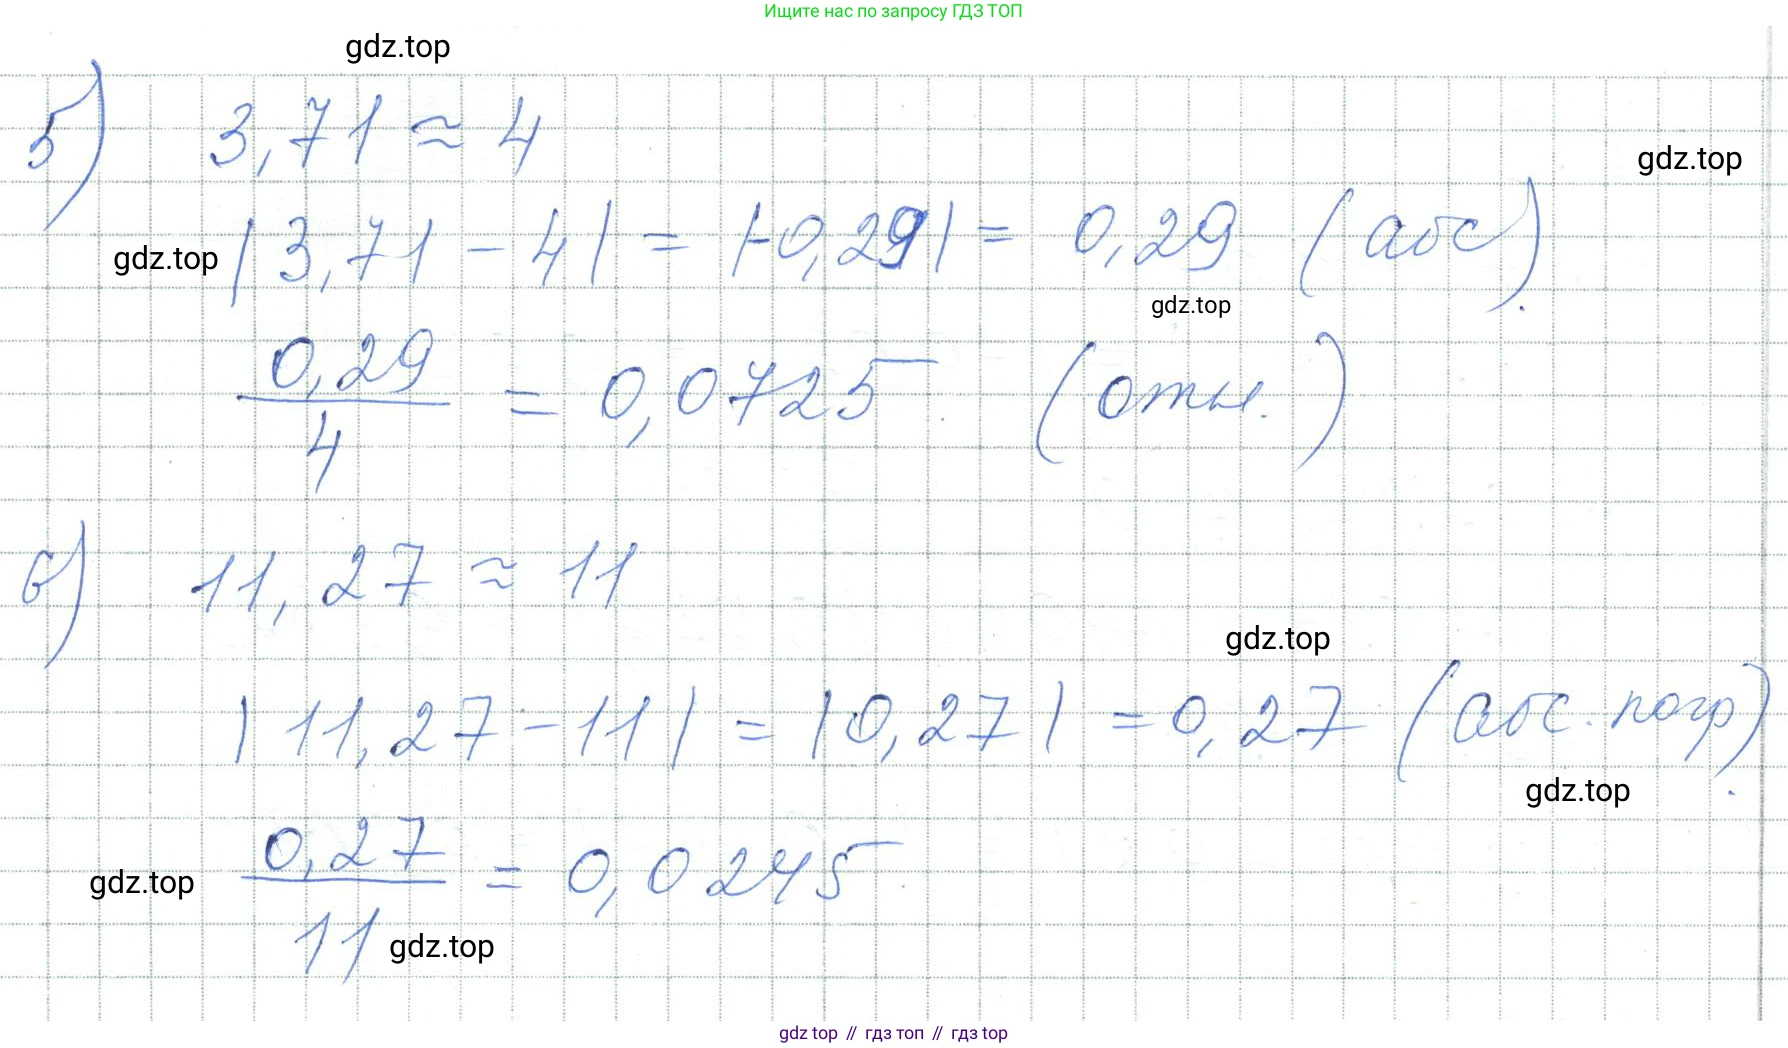 Ищите нас по запросу ГДЗ ТОП
gdz.top
б) 3,71 ≈ 4
gdz.top
gdz.top |3,71 - 4| = |-0,29| = 0,29 (абс).
gdz.top
0,29/4 = 0,0725. (отн.)
в) 11,27 ≈ 11
gdz.top
|11,27 - 11| = |0,27| = 0,27 (абс. погр).
gdz.top
gdz.top 0,27/11 = 0,0245.
gdz.top
gdz top // гдз топ // гдз top